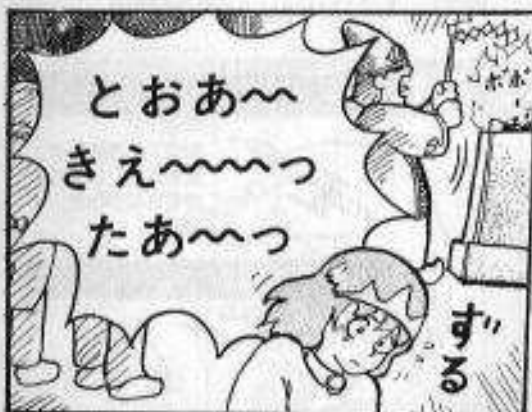 とおあ〜〜
きえ〜〜〜〜っ
たあ〜〜っ
ずる